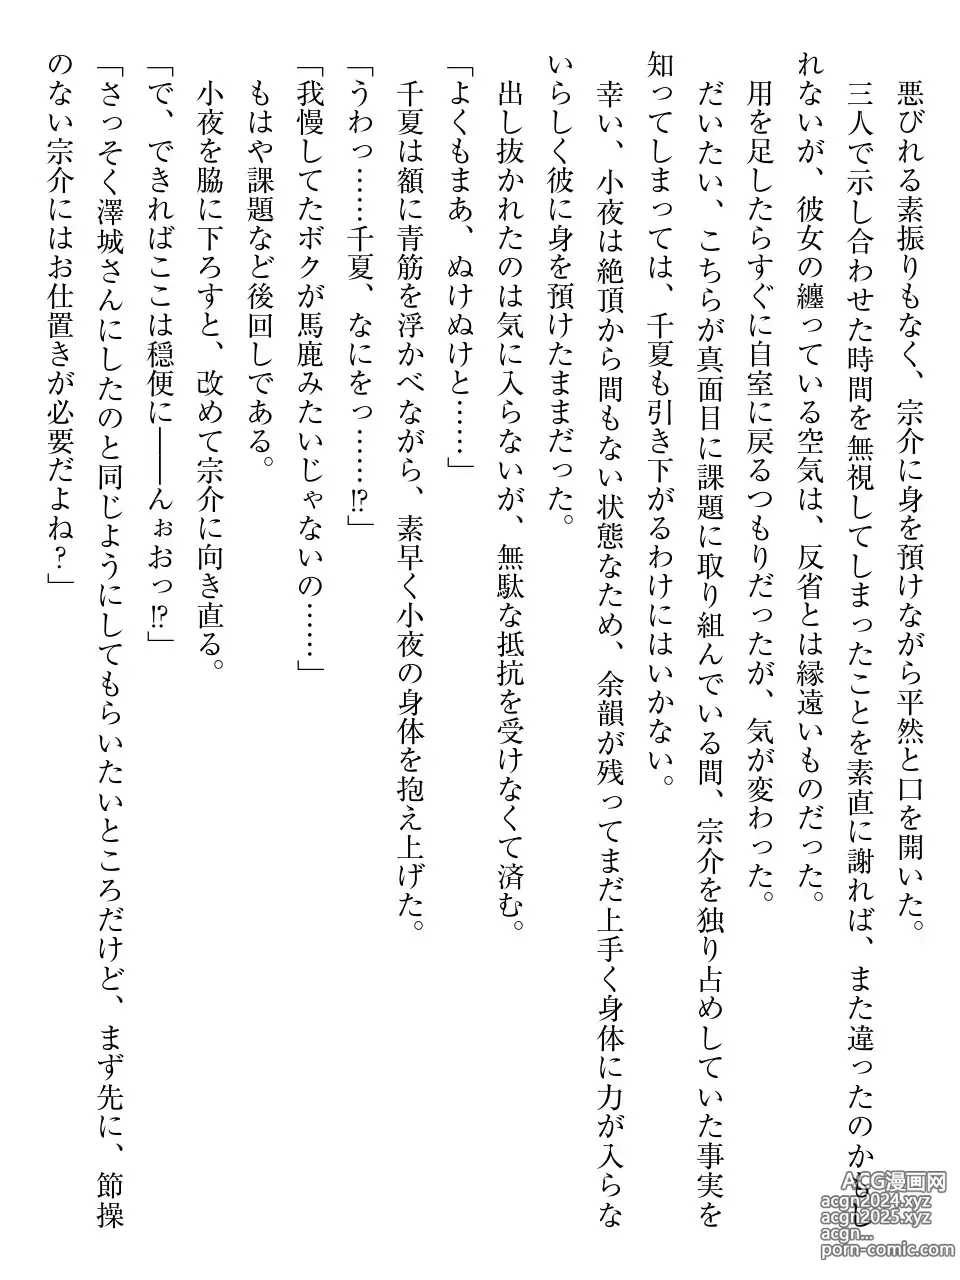 悪びれる素振りもなく、宗介に身を預けながら平然と口を開いた。
三人で示し合わせた時間を無視してしまったことを素直に謝れば、また違ったのかもし
れないが、彼女の纏っている空気は、反省とは縁遠いものだった。
用を足したらすぐに自室に戻るつもりだったが、気が変わった。
だいたい、こちらが真面目に課題に取り組んでいる間、宗介を独り占めしていた事実を
知ってしまっては、千夏も引き下がるわけにはいかない。
幸い、小夜は絶頂から間もない状態なため、余韻が残ってまだ上手く身体に力が入らな
いらしく彼に身を預けたままだった。
出し抜かれたのは気に入らないが、無駄な抵抗を受けなくて済む。
「よくもまあ、ぬけぬけと……」
千夏は額に青筋を浮かべながら、素早く小夜の身体を抱え上げた。
「うわっ……千夏、なにをっ……!?」
「我慢してたボクが馬鹿みたいじゃないの……」
もはや課題など後回しである。
小夜を脇に下ろすと、改めて宗介に向き直る。
「で、できればここは穏便に――んぉおっ!?」
「さっそく澤城さんにしたのと同じようにしてもらいたいところだけど、まず先に、節操
のない宗介にはお仕置きが必要だよね?」
ACG漫画网
acgn2024.xyz
acgn2025.xyz
acgn...
porn-comic.com